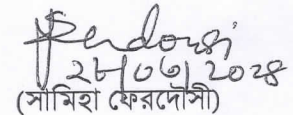 Ferdousi
২৮/০৬/২০২৪
(সামিহা ফেরদৌসী)